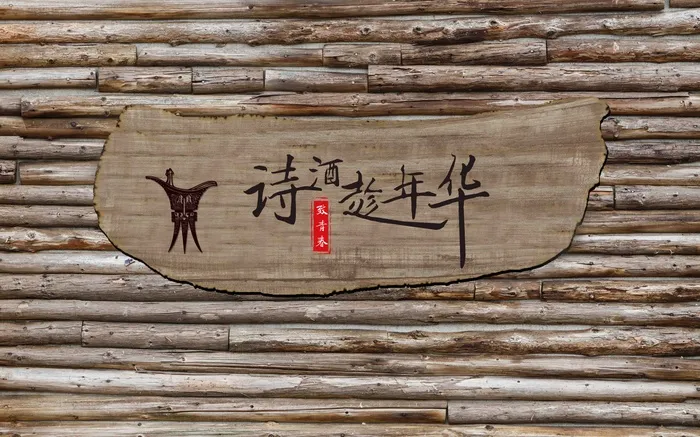 诗酒趁年华
致青春